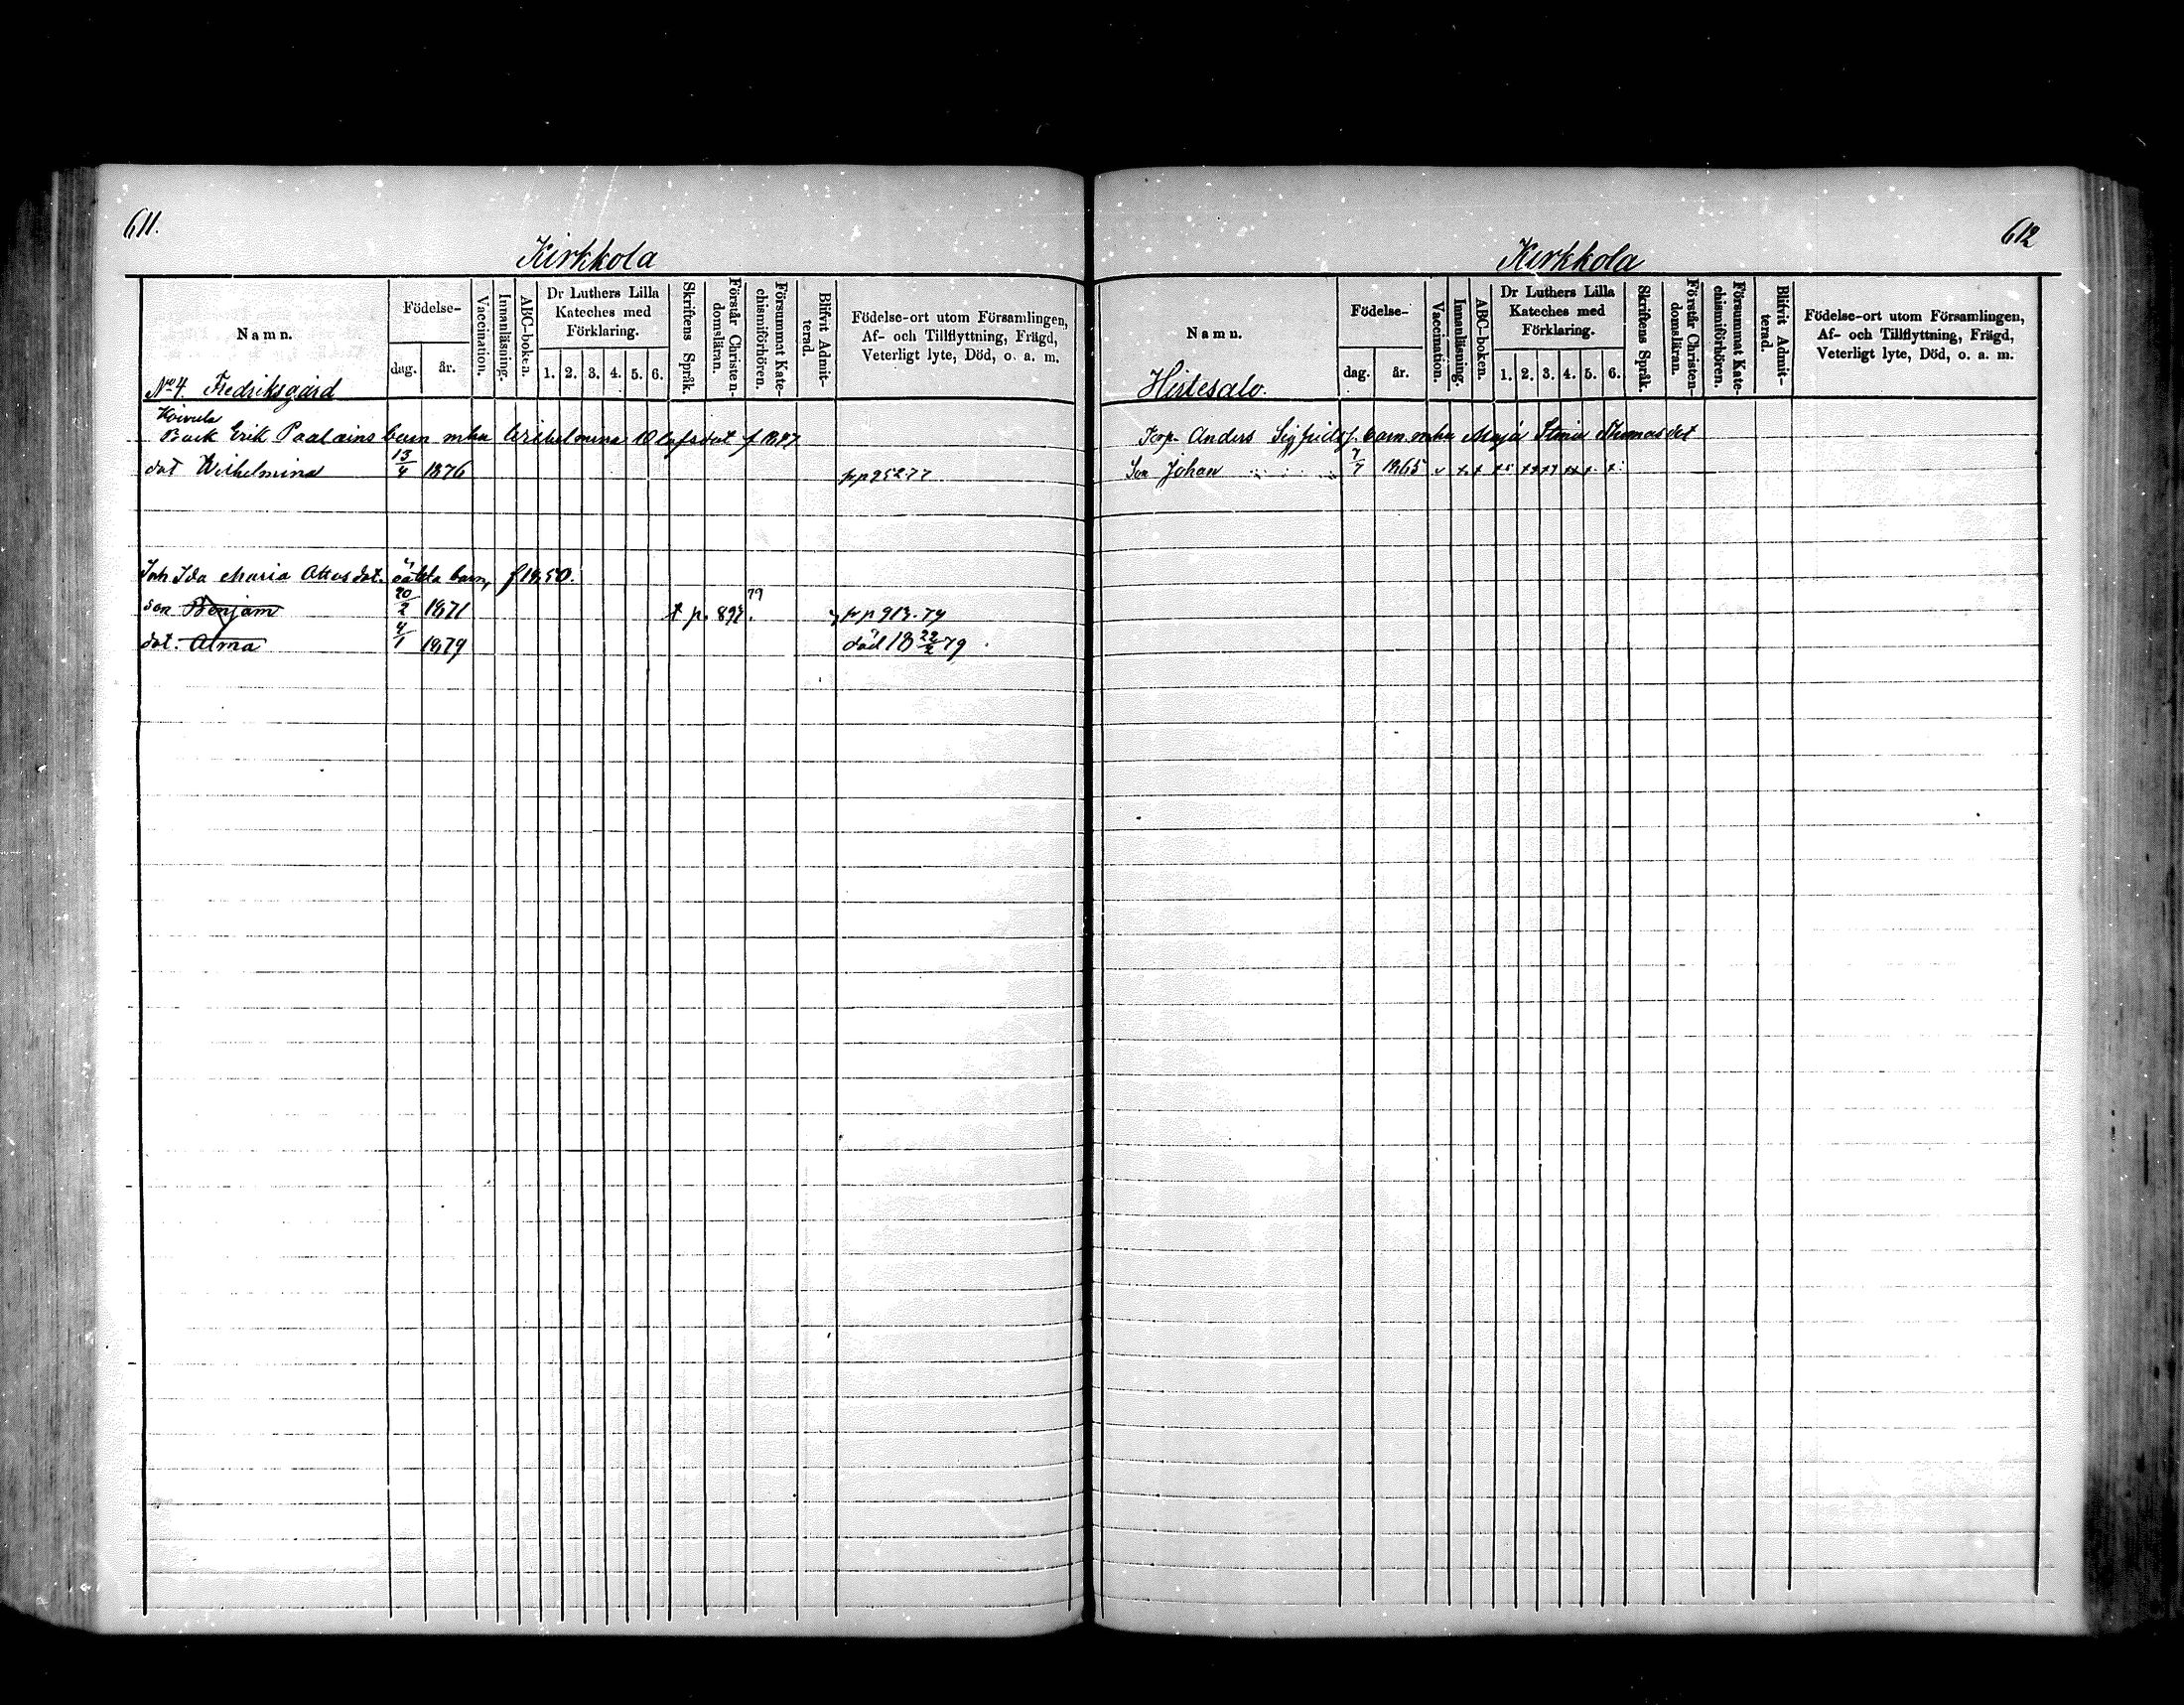 611.
Kirkkola
Namn.
Födelse-
dag.
år.
Vaccination.
Innanläsning.
ABC-boken.
Dr Luthers Lilla
Kateches med
Förklaring.
1. 2. 3. 4. 5. 6.
Skriftens Språk.
Förstår Christen-
domsläran.
Försummat Kate-
chismiförhören.
Blifvit Admit-
terad.
Födelse-ort utom Församlingen,
Af- och Tillflyttning, Frägd,
Veterligt lyte, Död, o. a. m.
No 4. Fredriksgård
Koivula
Erik Paalains barn mha Wilhelmina Olofsdot f 1847
dot Wilhelmina 13/4 1876 pp 952.77
Inh. Ida Maria Ottosdot. oäkta barn, f 1850.
son Benjam 20/2 1871 t p. 897. 79 pp 913.74
dot. Alma 4/1 1879 död 18 22/2 79
612
Kirkkola
Namn.
Födelse-
dag.
år.
Vaccination.
Innanläsning.
ABC-boken.
Dr Luthers Lilla
Kateches med
Förklaring.
1. 2. 3. 4. 5. 6.
Skriftens Språk.
Förstår Christen-
domsläran.
Försummat Kate-
chismiförhören.
Blifvit Admit-
terad.
Födelse-ort utom Församlingen,
Af- och Tillflyttning, Frägd,
Veterligt lyte, Död, o. a. m.
Hirtesalo.
Torp. Anders Sigfridsf. barn mha Maja Stina Thomasdot
Son Johan 7/7 1865